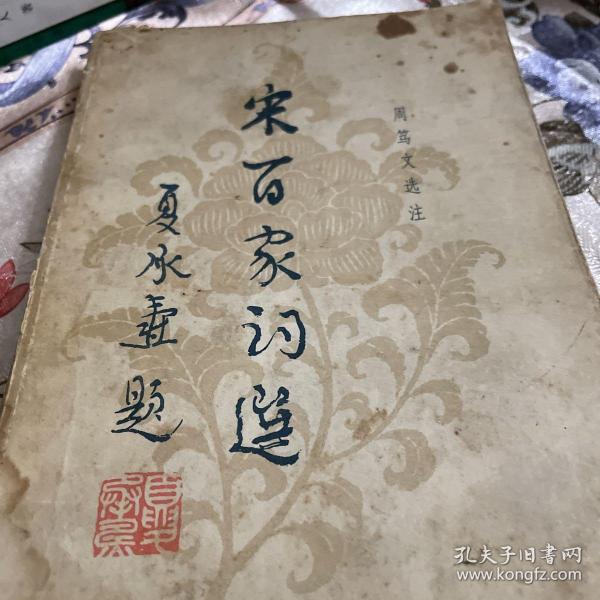 周笃文选注
宋百家词選
夏承焘題
孔夫子旧书网
www.kongfz.com